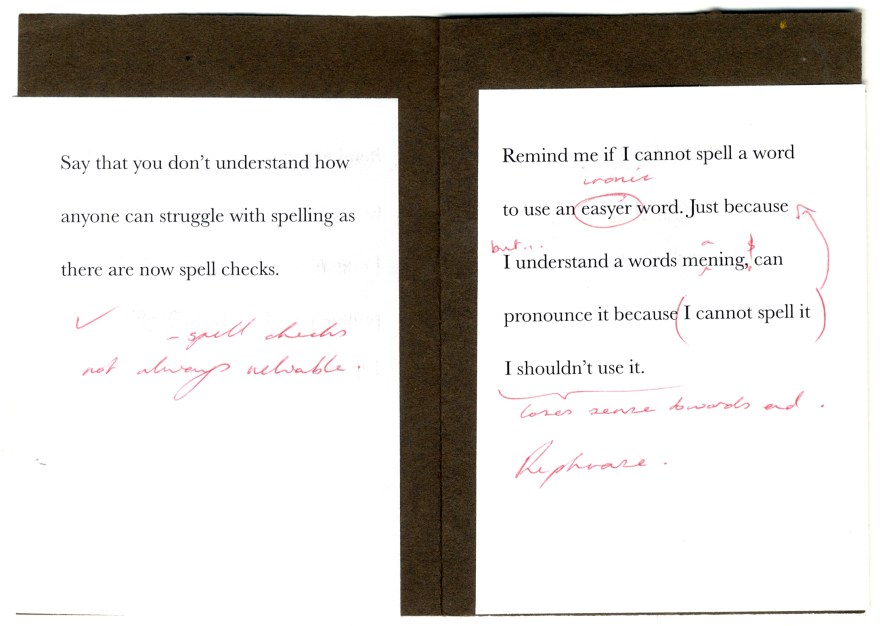 Say that you don’t understand how
anyone can struggle with spelling as
there are now spell checks.
- spell checks
not always reliable.
Remind me if I cannot spell a word
ironic
to use an easyer word. Just because
but...
I understand a words mening, can
a
pronounce it because I cannot spell it
I shouldn’t use it.
loses sense towards end.
Rephrase.